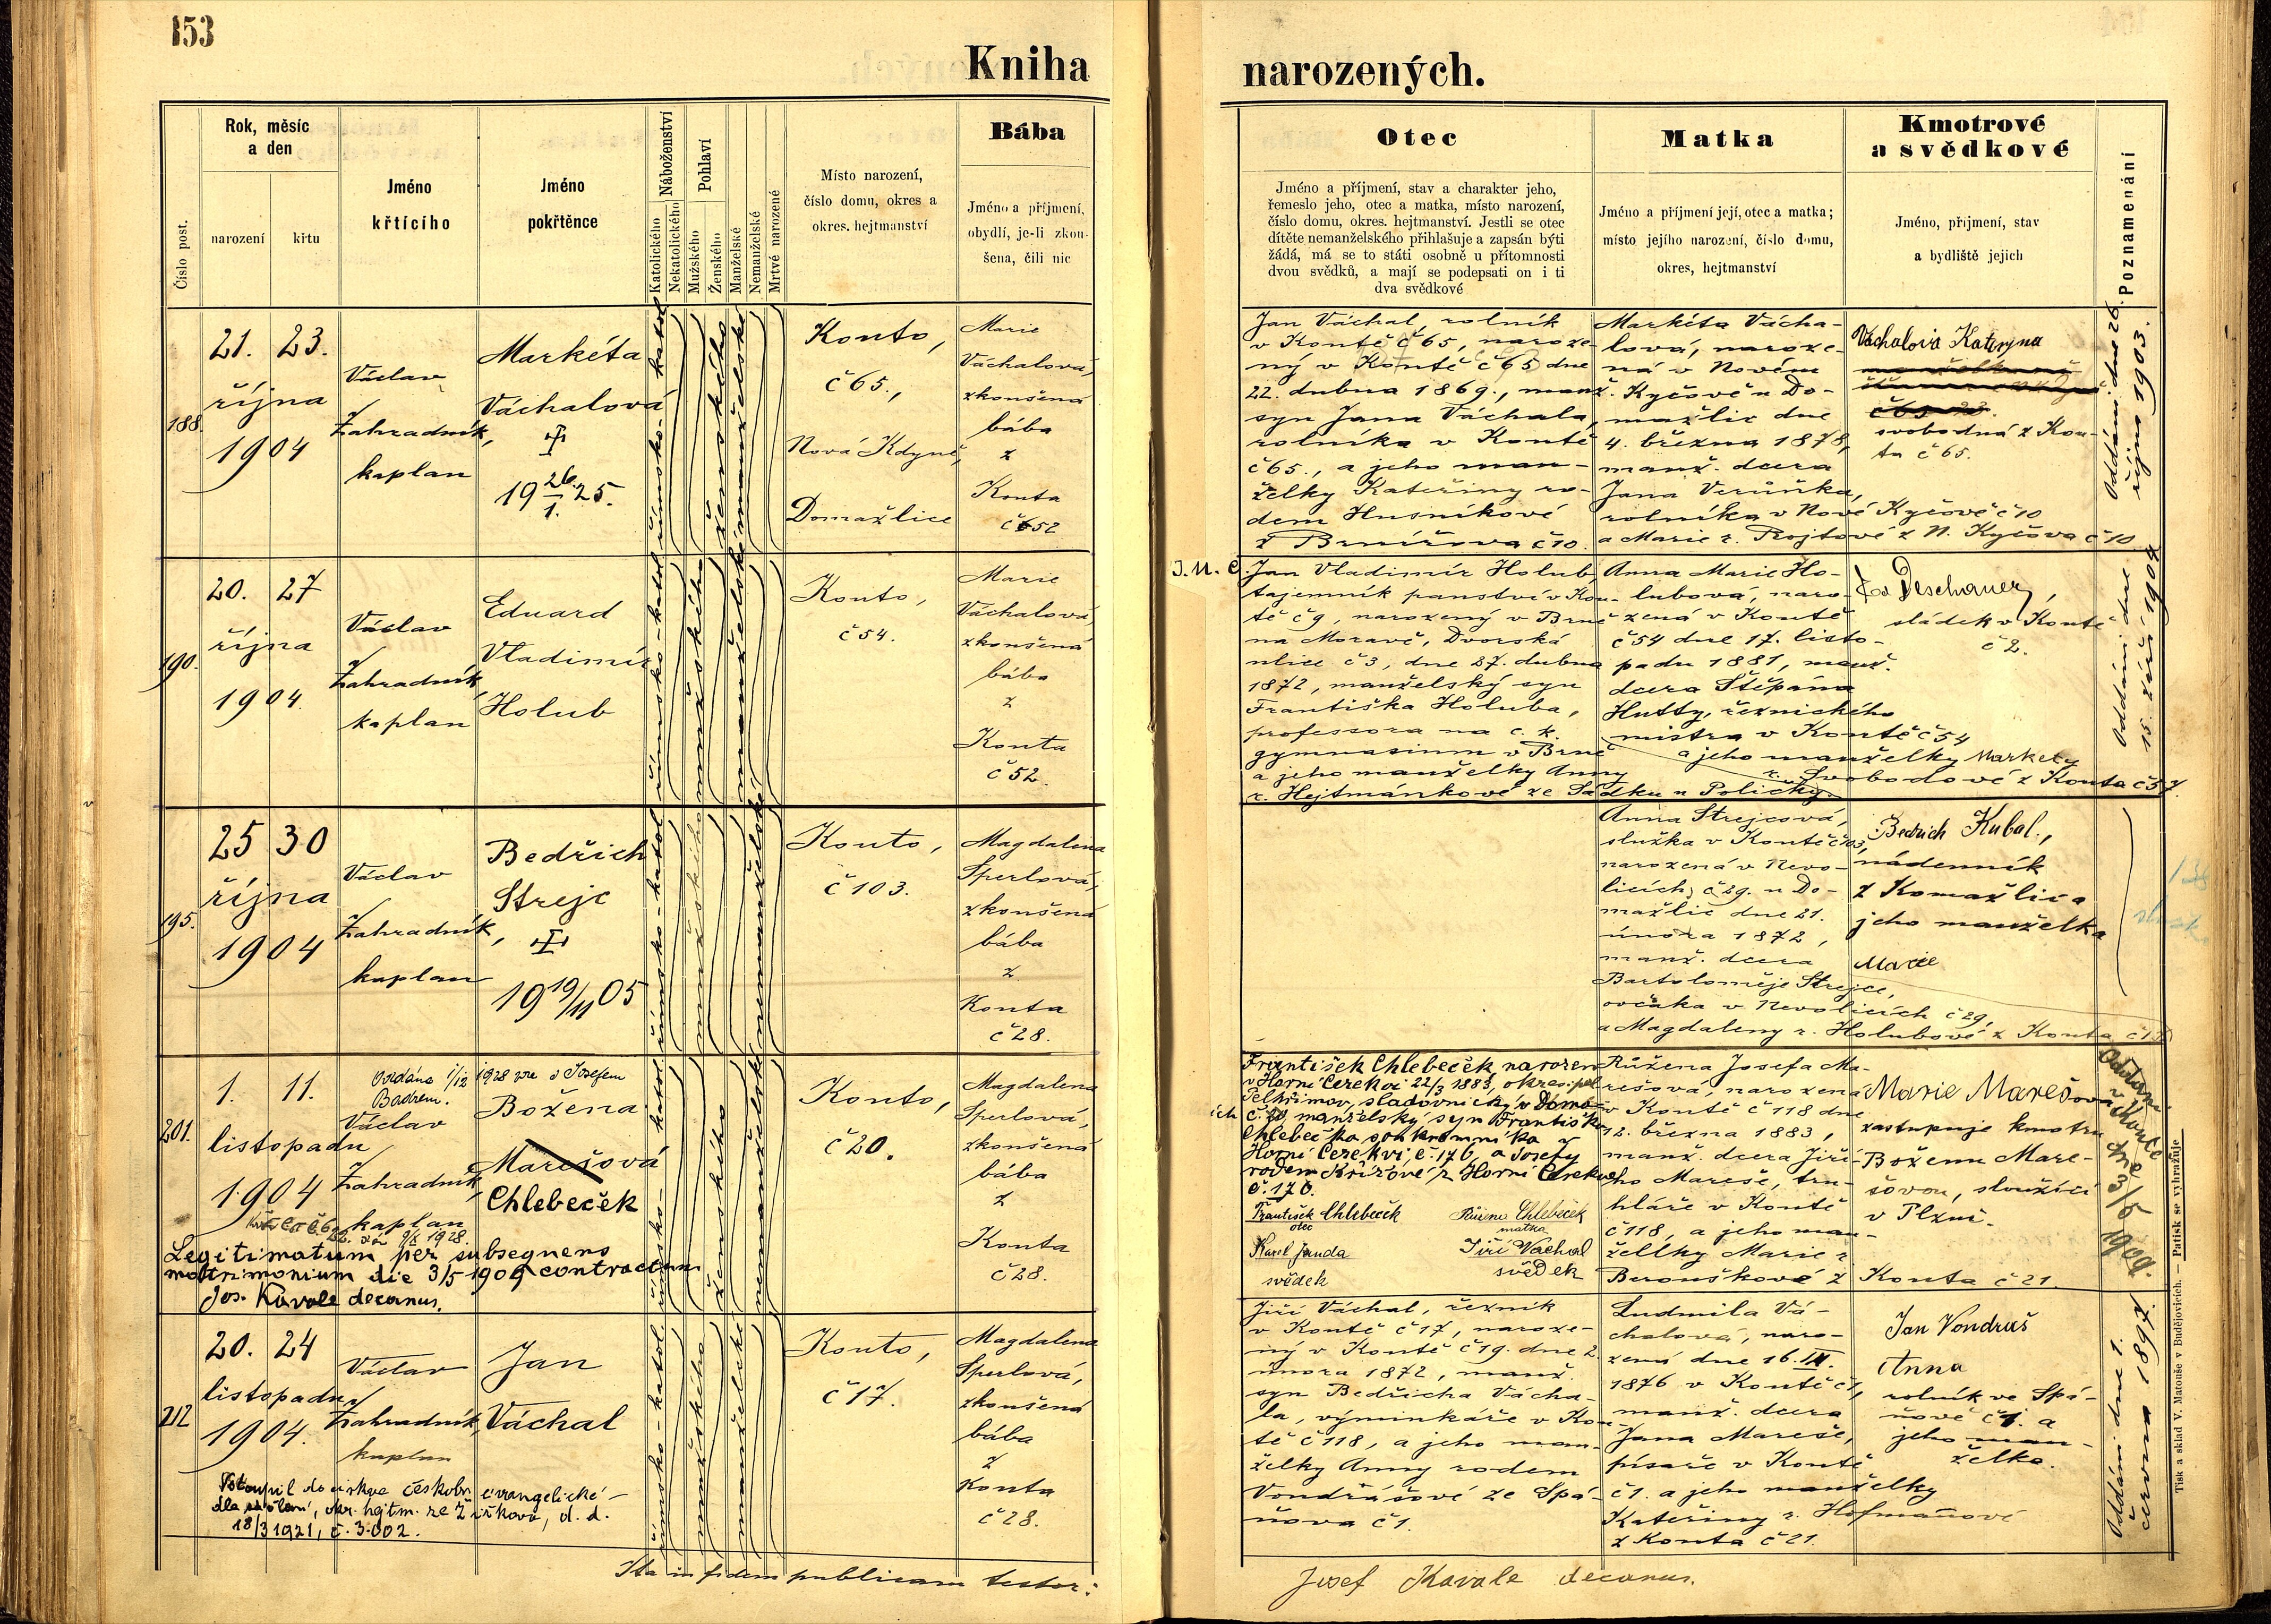 153
Kniha
narozených.
Číslo post.
Rok, měsíc
a den
narození
křtu
Jméno
křtícího
Jméno
pokřtěnce
Náboženství
Katolického
Nekatolického
Pohlaví
Mužského
Ženského
Manželské
Nemanželské
Mrtvé narozené
Místo narození,
číslo domu, okres a
okres. hejtmanství
Bába
Jméno a příjmení,
obydlí, je-li zkou-
šena, čili nic
Otec
Jméno a příjmení, stav a charakter jeho,
řemeslo jeho, otec a matka, místo narození,
číslo domu, okres. hejtmanství. Jestli se otec
dítěte nemanželského přihlašuje a zapsán býti
žádá, má se to státi osobně u přítomnosti
dvou svědků, a mají se podepsati on i ti
dva svědkové
Matka
Jméno a příjmení její, otec a matka;
místo jejího narození, číslo domu,
okres, hejtmanství
Kmotrové
a svědkové
Jméno, příjmení, stav
a bydliště jejich
Poznamenání
188.
21. 23.
října
1904
Václav
Zahradník,
kaplan
Markéta
Váchalová
19 26./1. 25.
římsko-katol
ženského
manželské
Konto,
č 65.,
Nová Kdyně,
Domažlice
Marie
Váchalová,
zkoušená
bába
z
Konta
č 652
Jan Váchal, rolník
v Kontě č 65, naroze-
ný v Kontě č 65 dne
22. dubna 1869., manž.
syn Jana Váchala,
rolníka v Kontě
č 65., a jeho man-
želky Kateřiny ro-
dem Husníkové
z Brnířova č 10.
Markéta Vácha-
lová, naroze-
ná v Novém
Kyčově u Do-
mažlic dne
4. března 1878,
manž. dcera
Jana Verůňka,
rolníka v Nové Kyčově č 10
a Marie r. Projtové z N. Kyčova č 10
Váchalová Kateřyna
svobodná z Kon-
ta č 65.
Oddáni dne 26.
října 1903.
190.
20. 27
října
1904.
Václav
Zahradník,
kaplan
Eduard
Vladimír
Holub
římsko-katol
mužského
manželské
Konto,
č 54.
Marie
Váchalová,
zkoušená
bába
z
Konta
č 52.
Jan Vladimír Holub,
tajemník panství v Kou-
tě č 9, narozený v Brně
na Moravě, Dvorská
ulice č 3, dne 27. dubna
1872, manželský syn
Františka Holuba,
professora na c. k.
gymnasium v Brně
a jeho manželky Anny
r. Hejtmánkové ze Sádku u Poličky.
Anna Marie Ho-
lubová, naro-
zená v Kontě
č 54 dne 17. listo-
padu 1881, manž.
dcera Štěpána
Hutty, řeznického
mistra v Kontě č 54
a jeho manželky Markety
r. Svobodové z Konta č 57.
Deschauer,
sládek v Kontě
č 2.
Oddáni dne
15. září 1902
195.
25 30
října
1904
Václav
Zahradník,
kaplan
Bedřich
Strejc
19 19/11 05
římsko-katol
mužského
nemanželské
Konto,
č 103.
Magdalena
Sperlová,
zkoušená
bába
z
Konta
č 28.
Anna Strejcová,
služka v Kontě č 103,
narozená v Nevo-
licích č 29. u Do-
mažlic dne 21.
února 1872,
manž. dcera
Bartoloměje Strejce,
ovčáka v Nevolicích č 29,
a Magdaleny r. Holubové z Konta
Bedrich Kubal.,
nádenník
z Domažlic a
jeho manželka
Marie
201.
1. 11.
listopadu
1904
Oddána 1/12 1928 s Josefem
Václav
Zahradník,
kaplan
Božena
Marešová
Chlebeček
římsko-katol
ženského
nemanželské
Legitimatum per subsequens
matrimonium die 3/5 1909 contractum
Jos. Kavale decanus.
Konto,
č 20.
Magdalena
Sperlová,
zkoušená
bába
z
Konta
č 28.
František Chlebeček narozen
v Horní Cerekvi 22/3 1883, okres. pol.
Pelhřimov, sladovnický v Domaž-
manželský syn Františka
Chlebečka soukromníka v
Horní Cerekvi č. 176, a Josefy
rodem Křížové z Horní Cerekve
č. 176.
František Chlebeček
otec
Růžena Chlebeček
matka
Karel Janda
svědek
Jiří Vachal
svědek
Růžena Josefa Ma-
rešová, narozená
v Kontě č 118 dne
12. března 1883,
manž. dcera Jiří-
ho Mareše, tru-
hláře v Kontě
č 118, a jeho man-
želky Marie r.
Berouškové z Konta č 21.
Marie Marešová
zastupuje kmotru
Boženu Mare-
šovou, sloužící
v Plzni.
Oddáni
v Koutě
dne 3/5
1909.
212
20. 24
listopadu
1904.
Václav
Zahradník,
kaplan
Jan
Váchal
římsko-katol.
mužského
manželské
Vstoupil do církve českobr. evangelické
18/3 1921, č. 3.002.
Konto,
č 17.
Magdalena
Sperlová,
zkoušená
bába
z
Konta
č 28.
Jiří Váchal, řezník
v Kontě č 17, naroze-
ný v Kontě č 19. dne 2.
února 1872, manž.
syn Bedřicha Vácha-
la, výminkáře v Kou-
tě č 118, a jeho man-
želky Anny rodem
Vondrášové ze Spá-
ňova č 1.
Ludmila Vá-
chalová, naro-
zená dne 16.
1876 v Kontě č 1,
manž. dcera
Jana Mareše,
písaře v Kontě
č 1. a jeho manželky
Kateřiny r. Hofmanové
z Konta č 21.
Jan Vondraš
Anna
rolník ve Spá-
ňově č 1. a
jeho man-
želka.
Oddáni dne 1.
června 1897.
Ita in fidem publicam testor:
Josef Kavale decanus.
Tisk a sklad V. Matouše v Budějovicích. — Patisk se vyhražuje